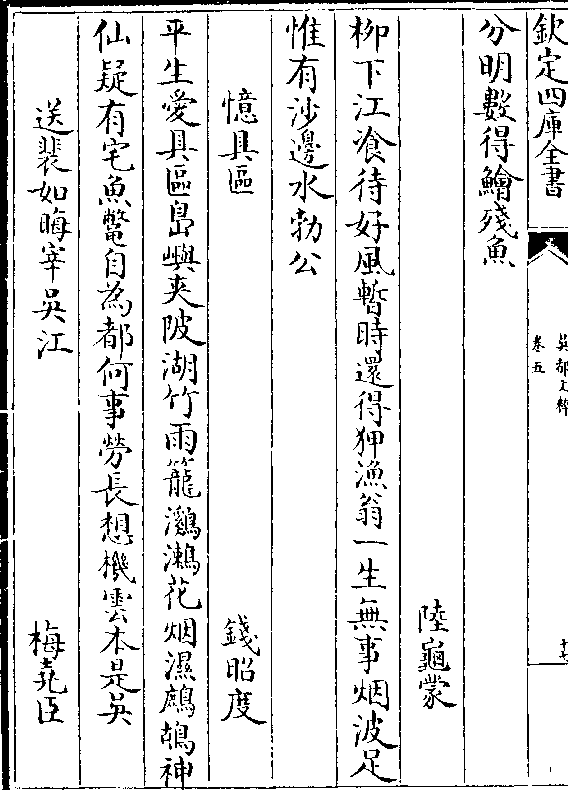 欽定四庫全書
吳都文粹
卷五
分明數得鱠殘魚
陸龜蒙
柳下江飡待好風暫時還得狎漁翁一生無事烟波足
惟有沙邊水勃公
憶具區 錢昭度
平生愛具區島嶼夾陂湖竹雨籠鸂鶒花烟濕鷓鴣神
仙疑有宅魚鼈自為都何事勞長想機雲本是吳
送裴如晦宰吳江 梅堯臣